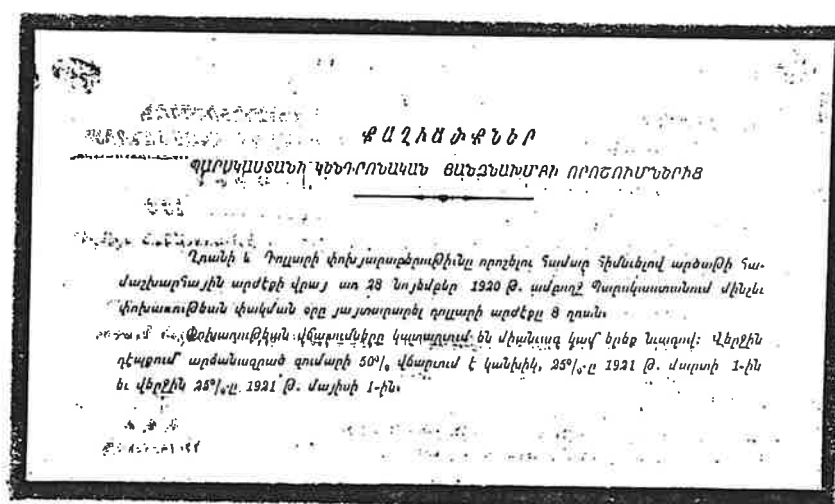 ՔԱՂԻԱԾՔՆԵՐ
ՊԱՐՍԿԱՍՏԱՆԻ ԿԵՆԴՐՈՆԱԿԱՆ ՅԱՆՁՆԱԽՄԲԻ ՈՐՈՇՈՒՄՆԵՐԻՑ
Ղրանի և Դոլլարի փոխյարաբերութիւնը որոշելու համար հիմնելով արծաթի հա-
մաշխարհային արժէքի վրայ առ 28 նոյեմբեր 1920 թ. ամբողջ Պարսկաստանում մինչեւ
փոխառութեան փակման օրը յայտարարել դոլլարի արժէքը 8 ղռան։
Փոխառութեան վճարումները կատարւում են միանւագ կամ երեք նւագով։ Վերջին
դէպքում արձանագրած գումարի 50% վճարւում է կանխիկ, 25%-ը 1921 թ. մարտի 1-ին
եւ վերջին 25%-ը 1921 թ. մայիսի 1-ին։